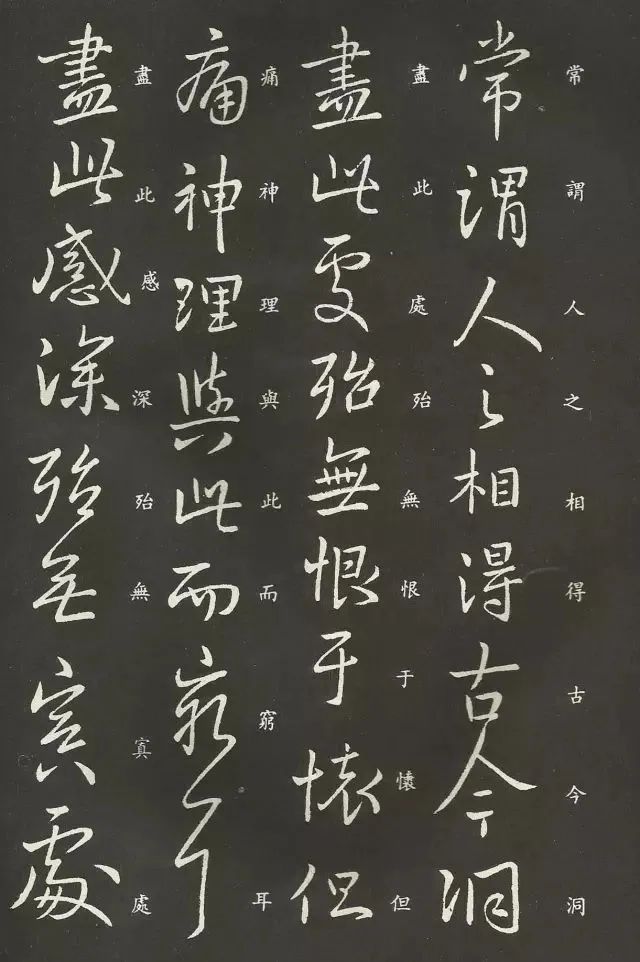 常謂人之相得古今洞
常謂人之相得古今洞
盡此處殆無恨于懷但
盡此處殆無恨于懷但
痛神理與此而窮耳
痛神理與此而窮耳
盡此感深殆無寘處
盡此感深殆無寘處